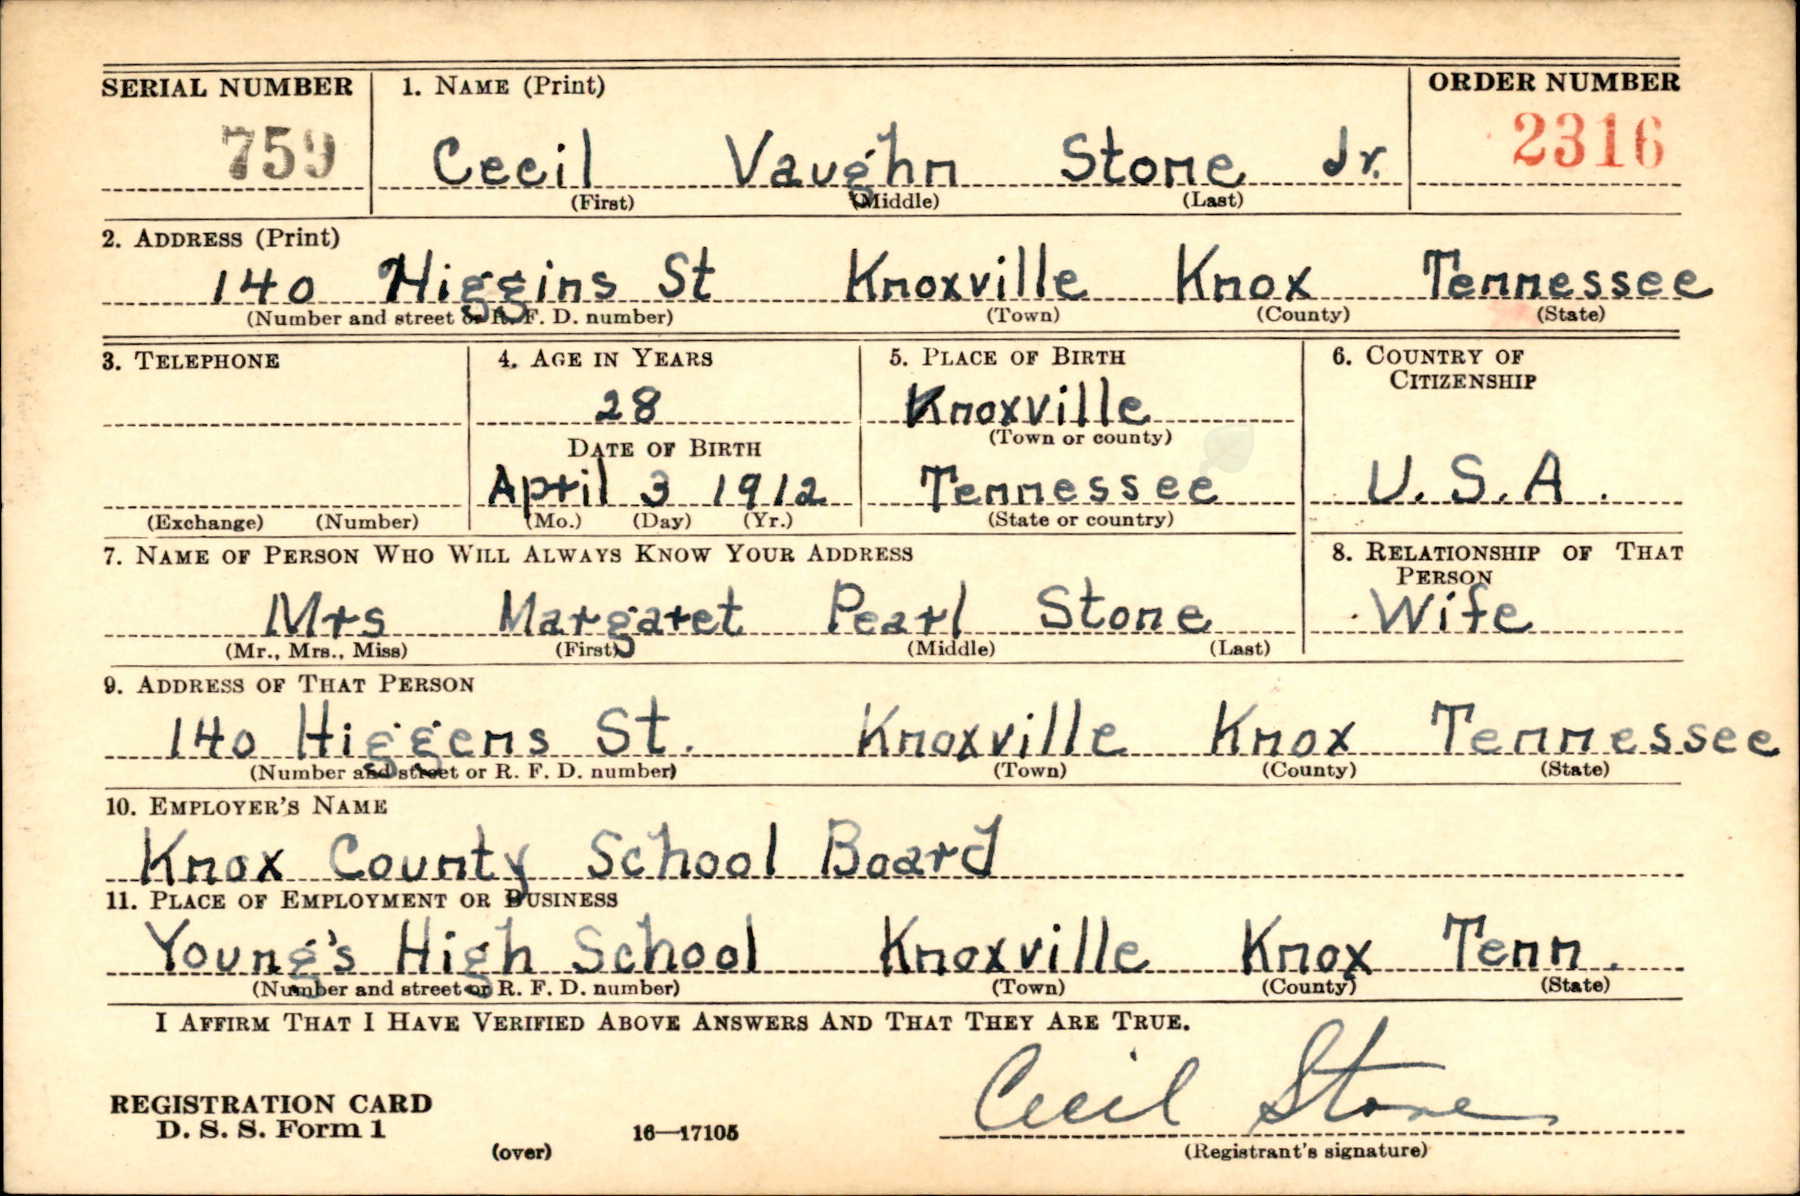 SERIAL NUMBER 1. NAME (Print) ORDER NUMBER
759 Cecil Vaughn Stone Jr. 2316
(First) (Middle) (Last)
2. ADDRESS (Print)
140 Higgins St Knoxville Knox Tennessee
(Number and street or R. F. D. number) (Town) (County) (State)
3. TELEPHONE 4. AGE IN YEARS 5. PLACE OF BIRTH 6. COUNTRY OF
CITIZENSHIP
28 Knoxville
(Town or county)
DATE OF BIRTH
April 3 1912 Tennessee U.S.A.
(Exchange) (Number) (Mo.) (Day) (Yr.) (State or country)
7. NAME OF PERSON WHO WILL ALWAYS KNOW YOUR ADDRESS 8. RELATIONSHIP OF THAT
PERSON
Mrs Margaret Pearl Stone Wife
(Mr., Mrs., Miss) (First) (Middle) (Last)
9. ADDRESS OF THAT PERSON
140 Higgens St. Knoxville Knox Tennessee
(Number and street or R. F. D. number) (Town) (County) (State)
10. EMPLOYER'S NAME
Knox County School Board
11. PLACE OF EMPLOYMENT OR BUSINESS
Young's High School Knoxville Knox Tenn.
(Number and street or R. F. D. number) (Town) (County) (State)
I AFFIRM THAT I HAVE VERIFIED ABOVE ANSWERS AND THAT THEY ARE TRUE.
Cecil Stone
REGISTRATION CARD
D. S. S. Form 1
(over) 16—17105 (Registrant's signature)